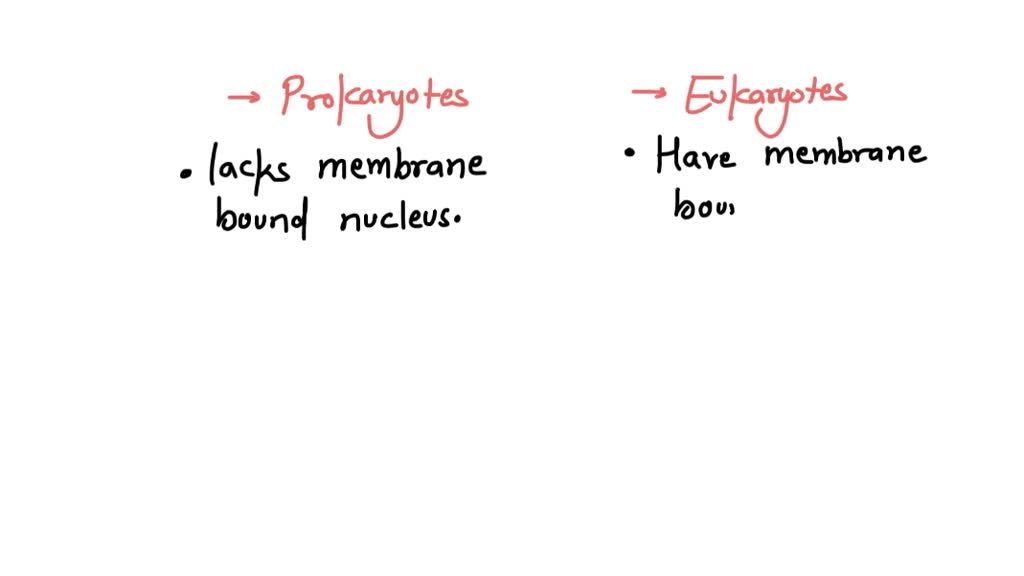 → Prokaryotes
• lacks membrane
bound nucleus.
→ Eukaryotes
• Have membrane
bou